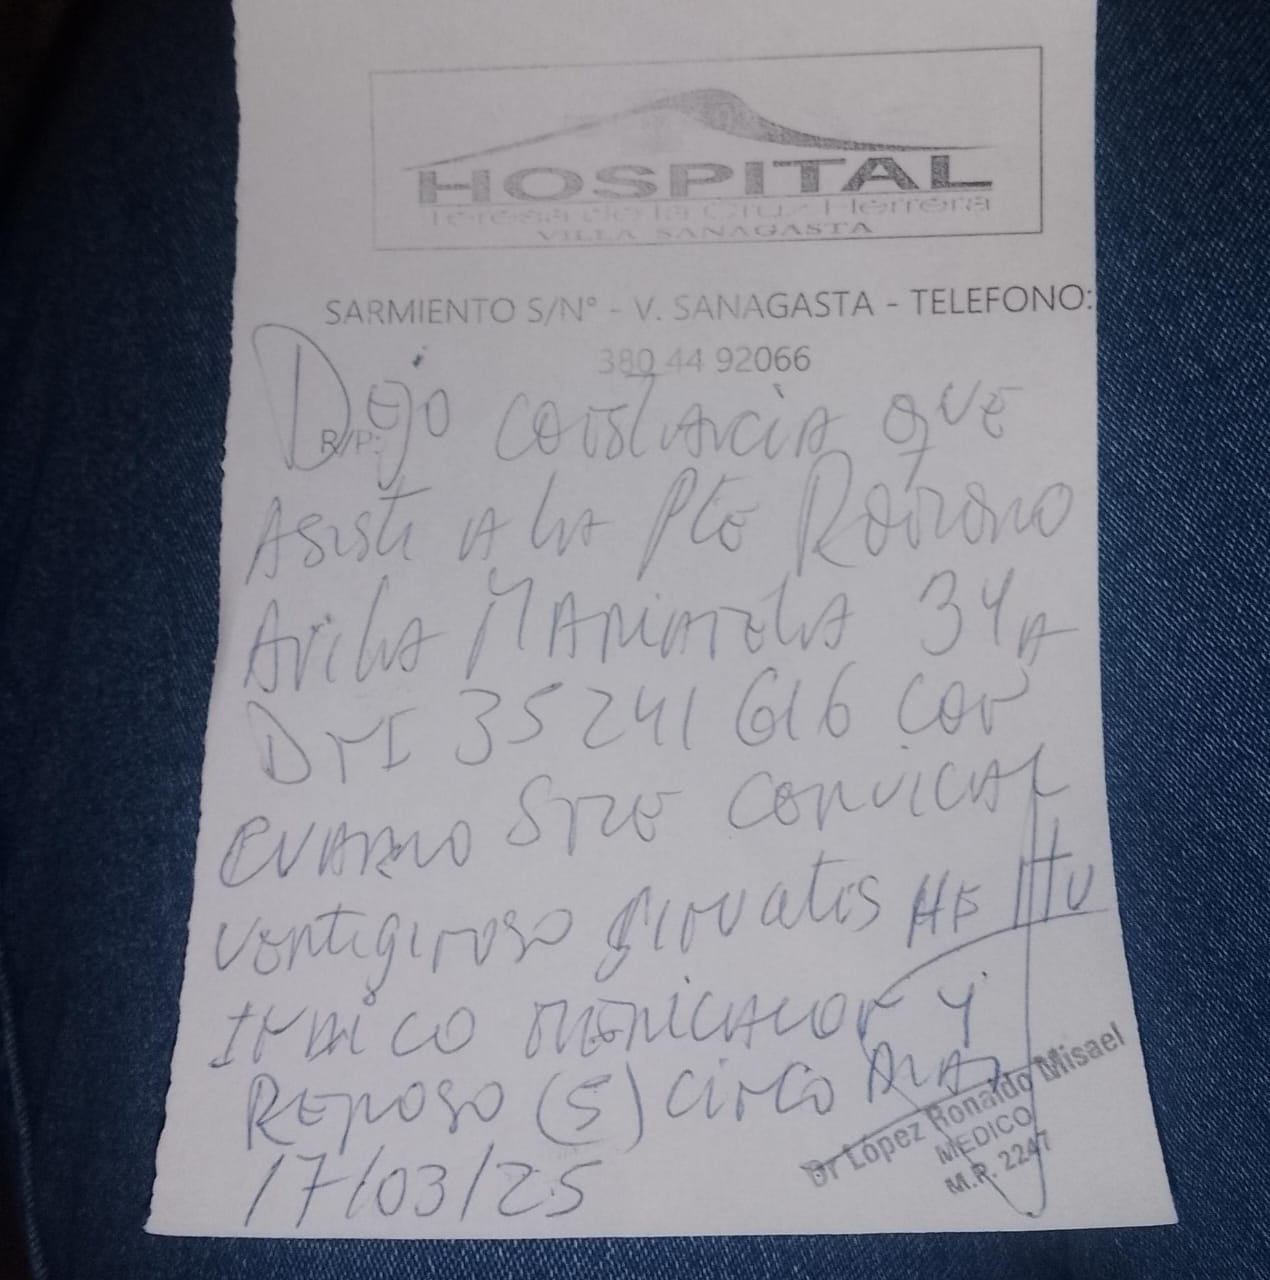 HOSPITAL
Teresa de la Cruz Herrera
VILLA SANAGASTA
SARMIENTO S/N° - V. SANAGASTA - TELEFONO:
380 44 92066
R/P:
Dejo constancia que
Asisti a la Pte
Avila Marianela 34 A
DNI 35241616 con
cuadro Sme cervical
vertiginoso
Indico medicacion y
Reposo (5) cinco
17/03/25
Dr López Ronaldo Misael
MEDICO
M.P. 2247